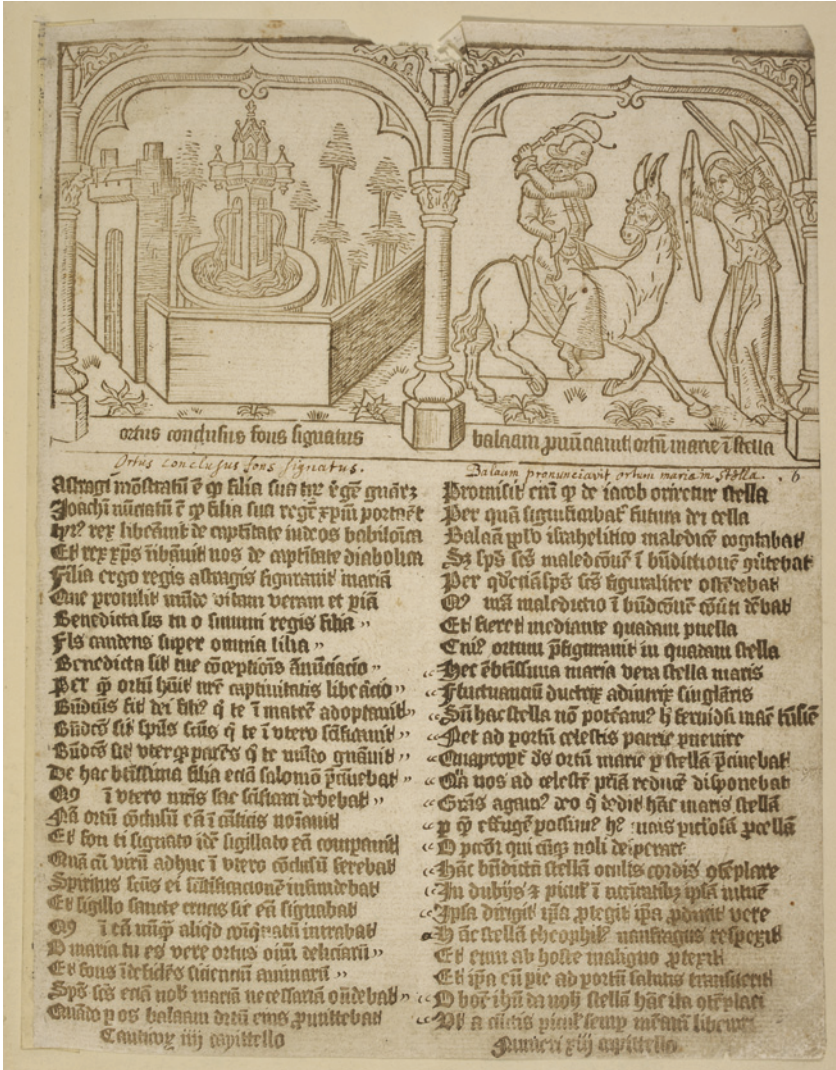 ortus conclusus fons signatus
balaam ꝓnūciauit ortū marie ī stella
Ortus conclusus fons signatus.
Balaam pronunciavit ortum mariæ in stella. 6
Astragi mōstratū ē ꝙ filia sua
Joachī nūciatū ē ꝙ filia sua regē xp̄m portar̄t
rex libeāuit de captītate iudeos babilōica
Et rex xp̄s libāuit nos de captītate diabolica
Filia ergo regis astragis figurauit mariā
Que protulit mūdo vitam veram et piā
Benedicta sis tu o summi regis filia
Fls candens super omnia lilia
Benedicta sit tue cōceptiōis ānūciacio
Per ꝙ ortū hūit nr̄e captiuitatis libeācio
Būdcūs sit dei filiꝰ q̄ te ī matrē adoptauit
Būdcūs sit spūs scūs q̄ te ī vtero sc̄ificauit
Būdcūs sit vterqꝫ parēs q̄ te mūdo gnāuit
De hac btīssima filia eciā salomō p̄cinebat
ī vtero mr̄is sac sc̄ificari debebat
Nā ortū cōclusū eā ī cāticis noīauit
Et fon ti signato idē sigillato eā compauit
Quā cū mr̄ū adhuc ī vtero cōclusū ferebat
Spiritus scūs ei sc̄ificacionē infundebat
Et sigillo sancte crucis sic eā signabat
ī eā nūqꝫ aliqd intrabat
O maria tu es vere ortus oīm deliciarū
Et fons īdeficiēs sicienciū animarū
Spūs scūs eciā nob mariā necessariā oñdebat
Quādo p os balaam ortū eiꝰ ꝓmittebat
Canticoꝝ iiij capittello
Promisit eni ꝙ de iacob oriretur stella
Per quā significabat futura dei cella
Balaā ipl̄o israhelitico maledicē cogitabat
Sꝫ spūs scūs maledcōnē ī būdictionē ꝯūtebat
Per qd eciā spūs scūs figuraliter ostēdebat
mā maledictio ī būdcōnē cōūti dēbat
Et fieret mediante quadam puella
Cuiꝰ ortum p̄figurauit in quadam stella
Hec ē btissima maria vera stella maris
Fluctuanciū ductrix adiutrix singlāris
Sū hac stella nō potēamꝰ
Nec ad portū celestis patrie puenire
Quapropt̄ ds ortū marie p stellā p̄cinebat
Qā nos ad celestē pr̄iā reducē disponebat
Grās agamꝰ deo q̄ dedit hāc maris stellā
p q̄ effugē possumꝰ hꝰ maris piclosā ꝓcellā
O pccōr qui cūqꝫ noli desperare
Hāc būdictā stellā oculis cordis ꝯtēplare
In dubijs ⁊ piculꝭ ī necitatibꝫ ipsā intuē
Ipsa dirigit ipā ꝓtegit ipā ꝓducit vere
H āc stellā theophilꝰ naufragus respexit
Et eum ab hoste maligno ꝓtexit
Et ipa eū pie ad portū salutis transuexit
O bōe ihū da nob stellā hāc ita ꝯtēplari
Vt a cūctis piculꝭ semp
Numeri xiij capittello